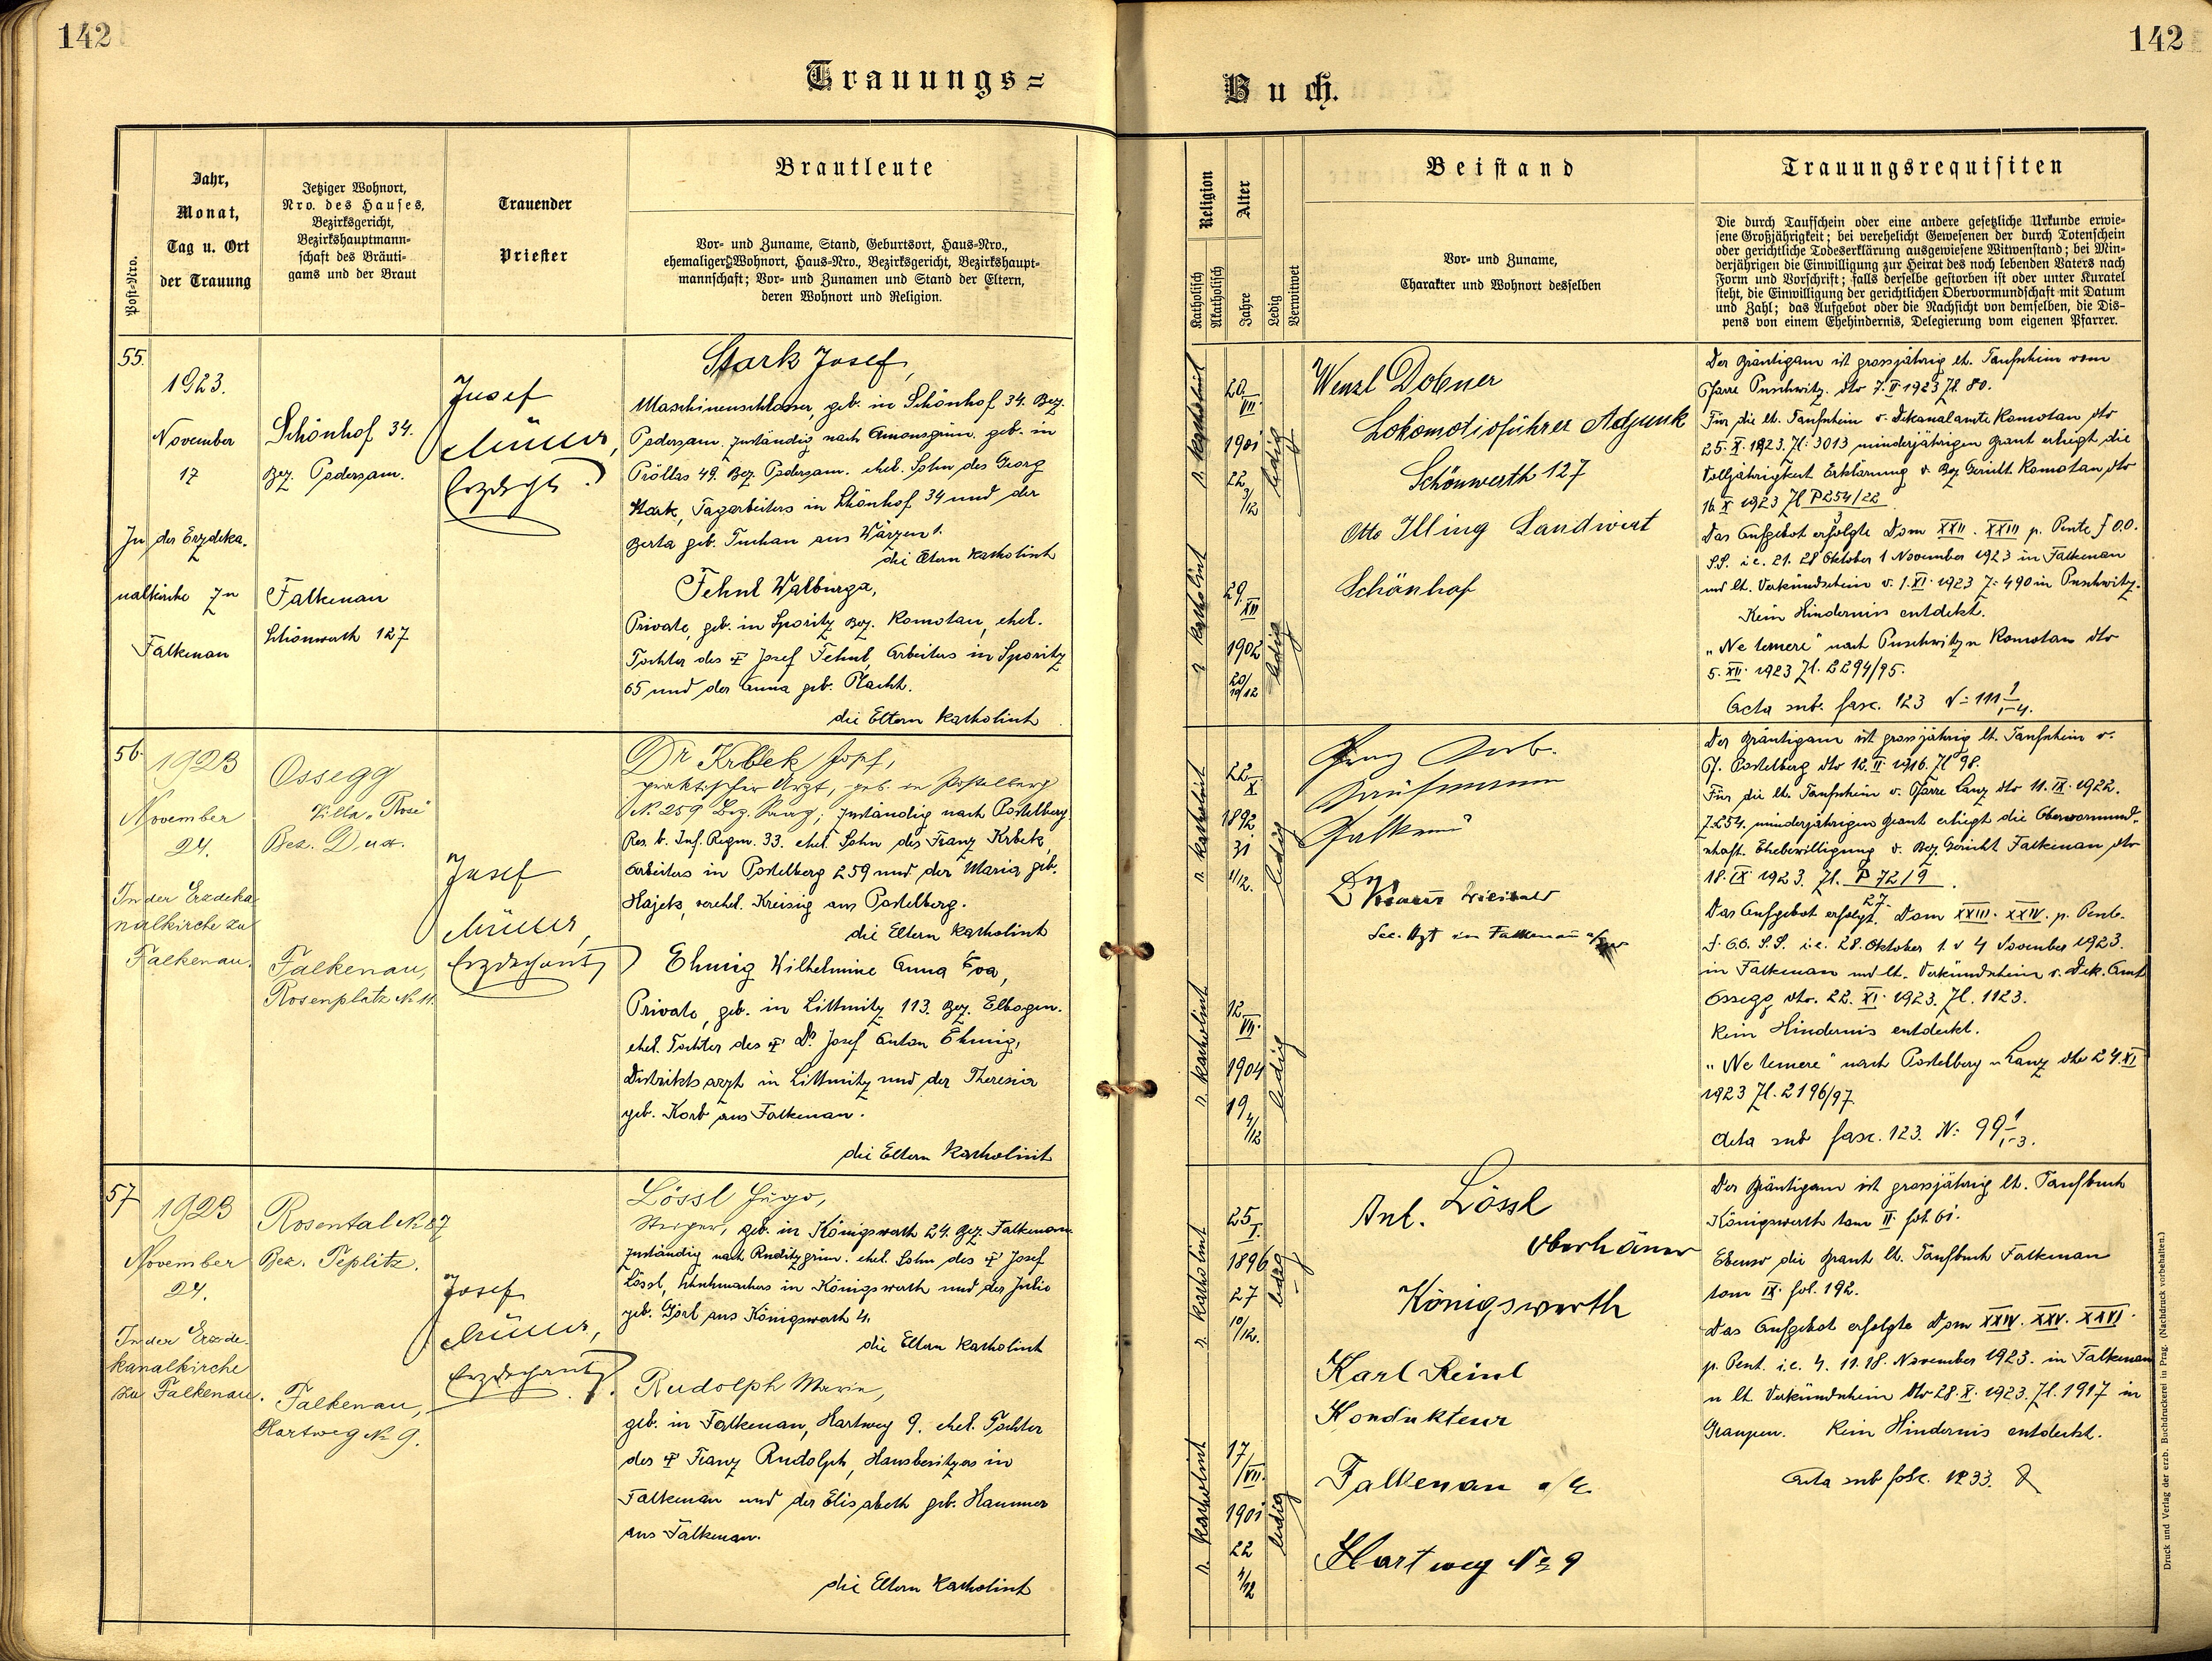 142
142
Trauungs=
Buch.
Post-Nro.
Jahr,
Monat,
Tag u. Ort
der Trauung
Jetziger Wohnort,
Nro. des Hauses,
Bezirksgericht,
Bezirkshauptmann-
schaft des Bräuti-
gams und der Braut
Trauender
Priester
Brautleute
Vor- und Zuname, Stand, Geburtsort, Haus-Nro.,
ehemaliger Wohnort, Haus-Nro., Bezirksgericht, Bezirkshaupt-
mannschaft; Vor- und Zunamen und Stand der Eltern,
deren Wohnort und Religion.
Religion
Katholisch
Akatholisch
Alter
Jahre
Ledig
Verwitwet
Beistand
Vor- und Zuname,
Charakter und Wohnort desselben
Trauungsrequisiten
Die durch Taufschein oder eine andere gesetzliche Urkunde erwie-
sene Großjährigkeit; bei verehelicht Gewesenen der durch Totenschein
oder gerichtliche Todeserklärung ausgewiesene Witwenstand; bei Min-
derjährigen die Einwilligung zur Heirat des noch lebenden Vaters nach
Form und Vorschrift; falls derselbe gestorben ist oder unter Kuratel
steht, die Einwilligung der gerichtlichen Obervormundschaft mit Datum
und Zahl; das Aufgebot oder die Nachsicht von demselben, die Dis-
pens von einem Ehehindernis, Delegierung vom eigenen Pfarrer.
55.
1923.
November
17
In der Erzdeka-
nalkirche zu
Falkenau
Schönhof 34.
Bez. Podersam.
Falkenau
Schönwerth 127
Josef
Müller,
Erzdcht
Stark Josef,
Maschinenschlosser, geb. in Schönhof 34. Bez.
Podersam. zuständig nach Amonsgrün. geb. in
Pröllas 49. Bez. Podersam. ehel. Sohn des Georg
Stark, Tagarbeiters in Schönhof 34 und der
Berta geb. Tuchan aus
die Eltern katholisch
Fehnl Walburga,
Private, geb. in Sporitz Bez. Komotau, ehel.
Tochter des † Josef Fehnl, Arbeiters in Sporitz
65 und der Anna geb. Placht.
die Eltern katholisch
r. katholisch
20/VII.
1901
22
3/12
ledig
r. katholisch
29.
XII
1902
20/
10/12
ledig
Wenzl Dobner
Lokomotivführer Adjunk
Schönwerth 127
Otto Illing Landwirt
Schönhof
Der Bräutigam ist grossjährig lt. Taufschein vom
Pfarre Puschwitz. dto 7. II 1923 Zl. 80.
Für die lt. Taufschein v. Dekanalamte Komotau dto
25. X. 1923. Zl: 3013 minderjährigen Braut erliegt die
Volljährigkeit Erklärung v. Bez Gericht Komotau dto
16. X 1923 Zl P 254/22
3
Das Aufgebot erfolgte Dom XXII. XXIII p. Pente f O.O.
S.S. i.e. 21. 28 Oktober 1 November 1923 in Falkenau
und lt. Verkündschein v. 1. XI. 1923 Z: 490 in Puschwitz.
Kein Hindernis entdekt.
„Ne temere“ nach Puschwitz u Komotau dto
5. XII. 1923 Zl. 2294/95.
Acta sub. fasc. 123 N= 111 1/1-4.
56.
1923
November
24.
In der Erzdeka
nalkirche zu
Falkenau.
Ossegg
Villa „Rosé“
Bez. Dux.
Falkenau,
Rosenplatz № 11.
Josef
Müller,
Erzdechant
Dr Krbek Josef,
praktischer Arzt, geb. in Postelberg
№ 259 Bez. Saaz; zuständig nach Postelberg
Res. b. Inf. Regm. 33. ehel. Sohn des Franz Krbek,
Arbeiters in Postelberg 259 und der Maria geb.
Hajek, verehel. Kreisig aus Postelberg.
die Eltern katholisch
Ehmig Wilhelmine Anna Eva,
Private, geb. in Littmitz 113. Bez. Elbogen.
ehel. Tochter des † Dr. Josef Anton Ehmig,
Distriktsarzt in Littmitz und der Theresia
geb. Korb aus Falkenau.
die Eltern katholisch
r. katholisch
22
X
1892.
31
1/12.
ledig
r. katholisch
12
VII.
1904
19
4/12
ledig
Kaufmann
Falkenau
Sec. Arzt in Falkenau a/Eger
Der Bräutigam ist grossjährig lt. Taufschein v.
Pf. Postelberg dto 12. II 1916. Zl 98.
Für die lt. Taufschein v. Pfarre Lanz dto 11. IX. 1922.
Z 254. minderjährigen Braut erliegt die Obervormund-
schaft. Ehebewilligung v. Bez. Gericht Falkenau dto
18. IX 1923. Zl. P 72/9
27.
Das Aufgebot erfolgt. Dom XXIII. XXIV. p. Pente.
f. O.O. S.S. i.e. 28. Oktober 1. v 4 November 1923.
in Falkenau und lt. Verkündschein v. Dek. Amt
Ossegg dto. 22. XI. 1923. Zl. 1123.
Kein Hindernis entdeckt.
„Ne temere“ nach Postelberg u Lanz dto 24. XI
1923 Zl. 2196/97.
Acta sub fasc. 123. N: 99 1/1-3.
57
1923
November
24.
In der Erzde-
kanalkirche
zu Falkenau.
Rosental № 87
Bez. Teplitz.
Falkenau,
Hartweg № 9.
Josef
Müller,
Erzdechant
Lössl Hugo,
Steiger, geb. in Königswerth 24. Bez. Falkenau
zuständig nach Ruditzgrün. ehel. Sohn des † Josef
Lössl, Schuhmachers in Königswerth und der Julie
geb. Gösl aus Königswerth 4.
die Eltern katholisch
Rudolph Marie,
geb. in Falkenau, Hartweg 9. ehel. Tochter
des † Franz Rudolph, Hausbesitzers in
Falkenau und der Elisabeth geb. Hammer
aus Falkenau.
die Eltern katholisch
r. katholisch
25
I.
1896
27
10/12.
ledig
r. katholisch
17/VII.
1901
22
4/12
ledig
Ant. Lössl
Oberhäuer
Königswerth
Karl Reinl
Kondukteur
Falkenau a/E.
Hartweg № 9
Der Bräutigam ist grossjährig lt. Taufbuch
Königswerth tom II fol. 61.
Ebenso die Braut lt. Taufbuch Falkenau
tom IX. fol. 192.
Das Aufgebot erfolgte Dom XXIV. XXV. XXVI.
p. Pent. i.e. 4. 11. 18. November 1923. in Falkenau
u lt Verkündschein dto 28. X. 1923. Zl. 1917 in
Graupen. Kein Hindernis entdeckt.
Acta sub fasc. 1233.
Druck und Verlag der erzb. Buchdruckerei in Prag. (Nachdruck vorbehalten.)